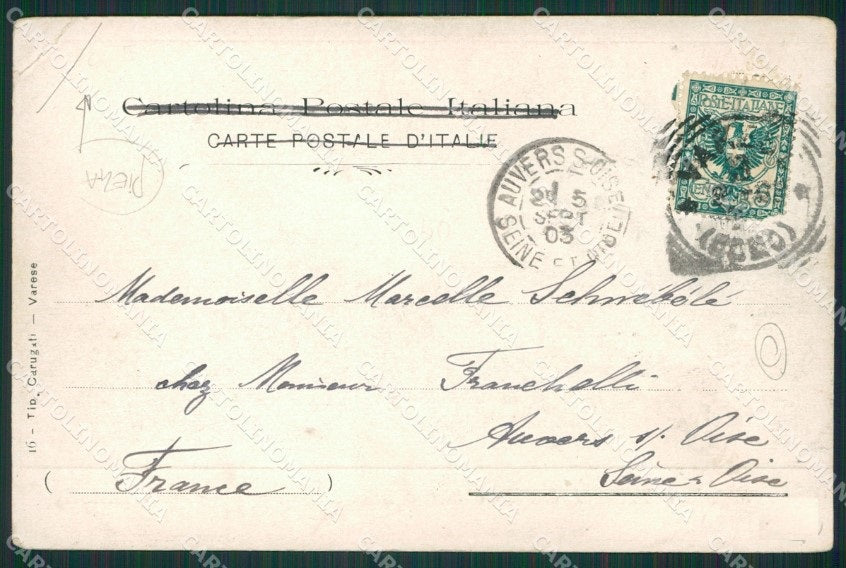 Cartolina Postale Italiana
CARTE POSTALE D'ITALIE
PIEGA
POSTE ITALIANE
AUVERS S-OISE
5
SEPT
03
SEINE ET OISE
(COMO)
16 - Tip. Carugati - Varese
Mademoiselle Marcelle Schwébélé
chez Monsieur Franchelli
Auvers s/ Oise
Seine & Oise
( France )
CARTOLINOMANIA